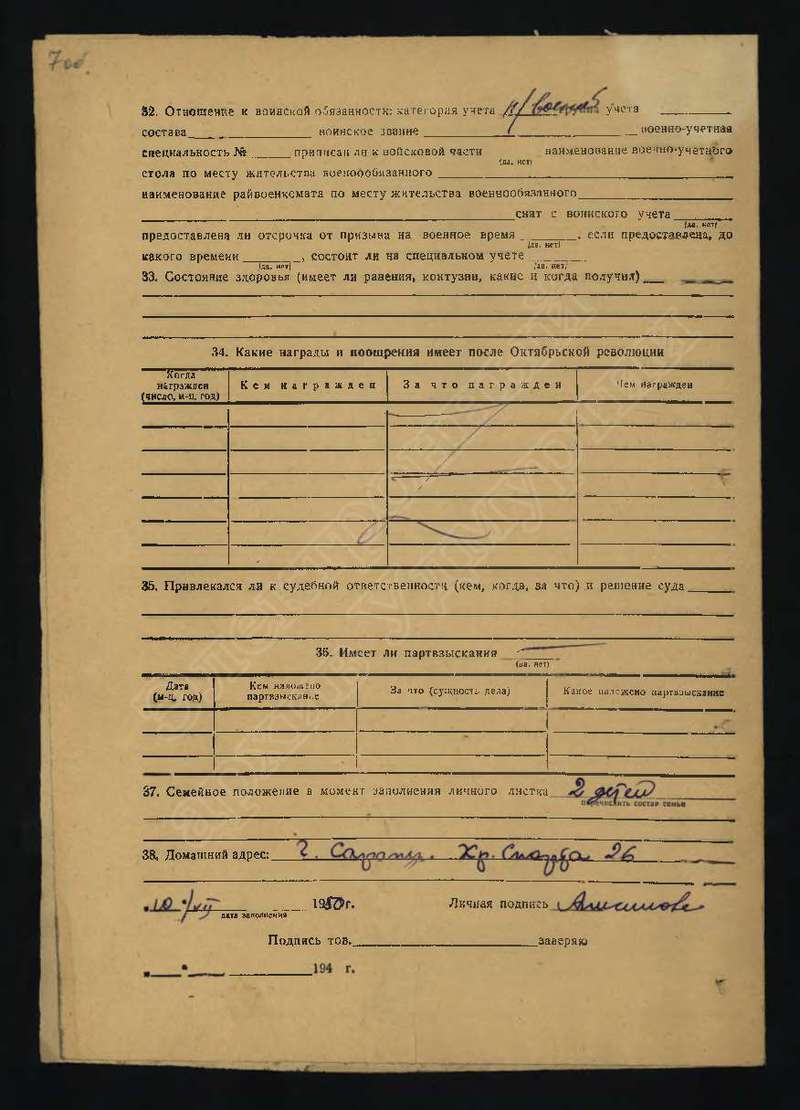 7об.
32. Отношение к воинской обязанности: категория учета н/военно учета
состава воинское звание военно-учетная
специальность № приписан ли к войсковой части наименование военно-учетного
(да, нет)
стола по месту жительства военнообязанного
наименование райвоенкомата по месту жительства военнообязанного
снят с воинского учета
(да, нет)
предоставлена ли отсрочка от призыва на военное время , если предоставлена, до
(да, нет)
какого времени , состоит ли на специальном учете
(да, нет) (да, нет)
33. Состояние здоровья (имеет ли ранения, контузии, какие и когда получил)
34. Какие награды и поощрения имеет после Октябрьской революции
Когда награжден (число, м-ц, год) Кем награжден За что награжден Чем награжден
35. Привлекался ли к судебной ответственности (кем, когда, за что) и решение суда
36. Имеет ли партвзыскания
(да, нет)
Дата (м-ц, год) Кем наложено партвзыскание За что (сущность дела) Какое наложено партвзыскание
37. Семейное положение в момент заполнения личного листка 2 детей
перечислить состав семьи
38. Домашний адрес: г. Сарапул. 26
10/VII 1950г. Личная подпись
дата заполнения
Подпись тов. заверяю
194 г.